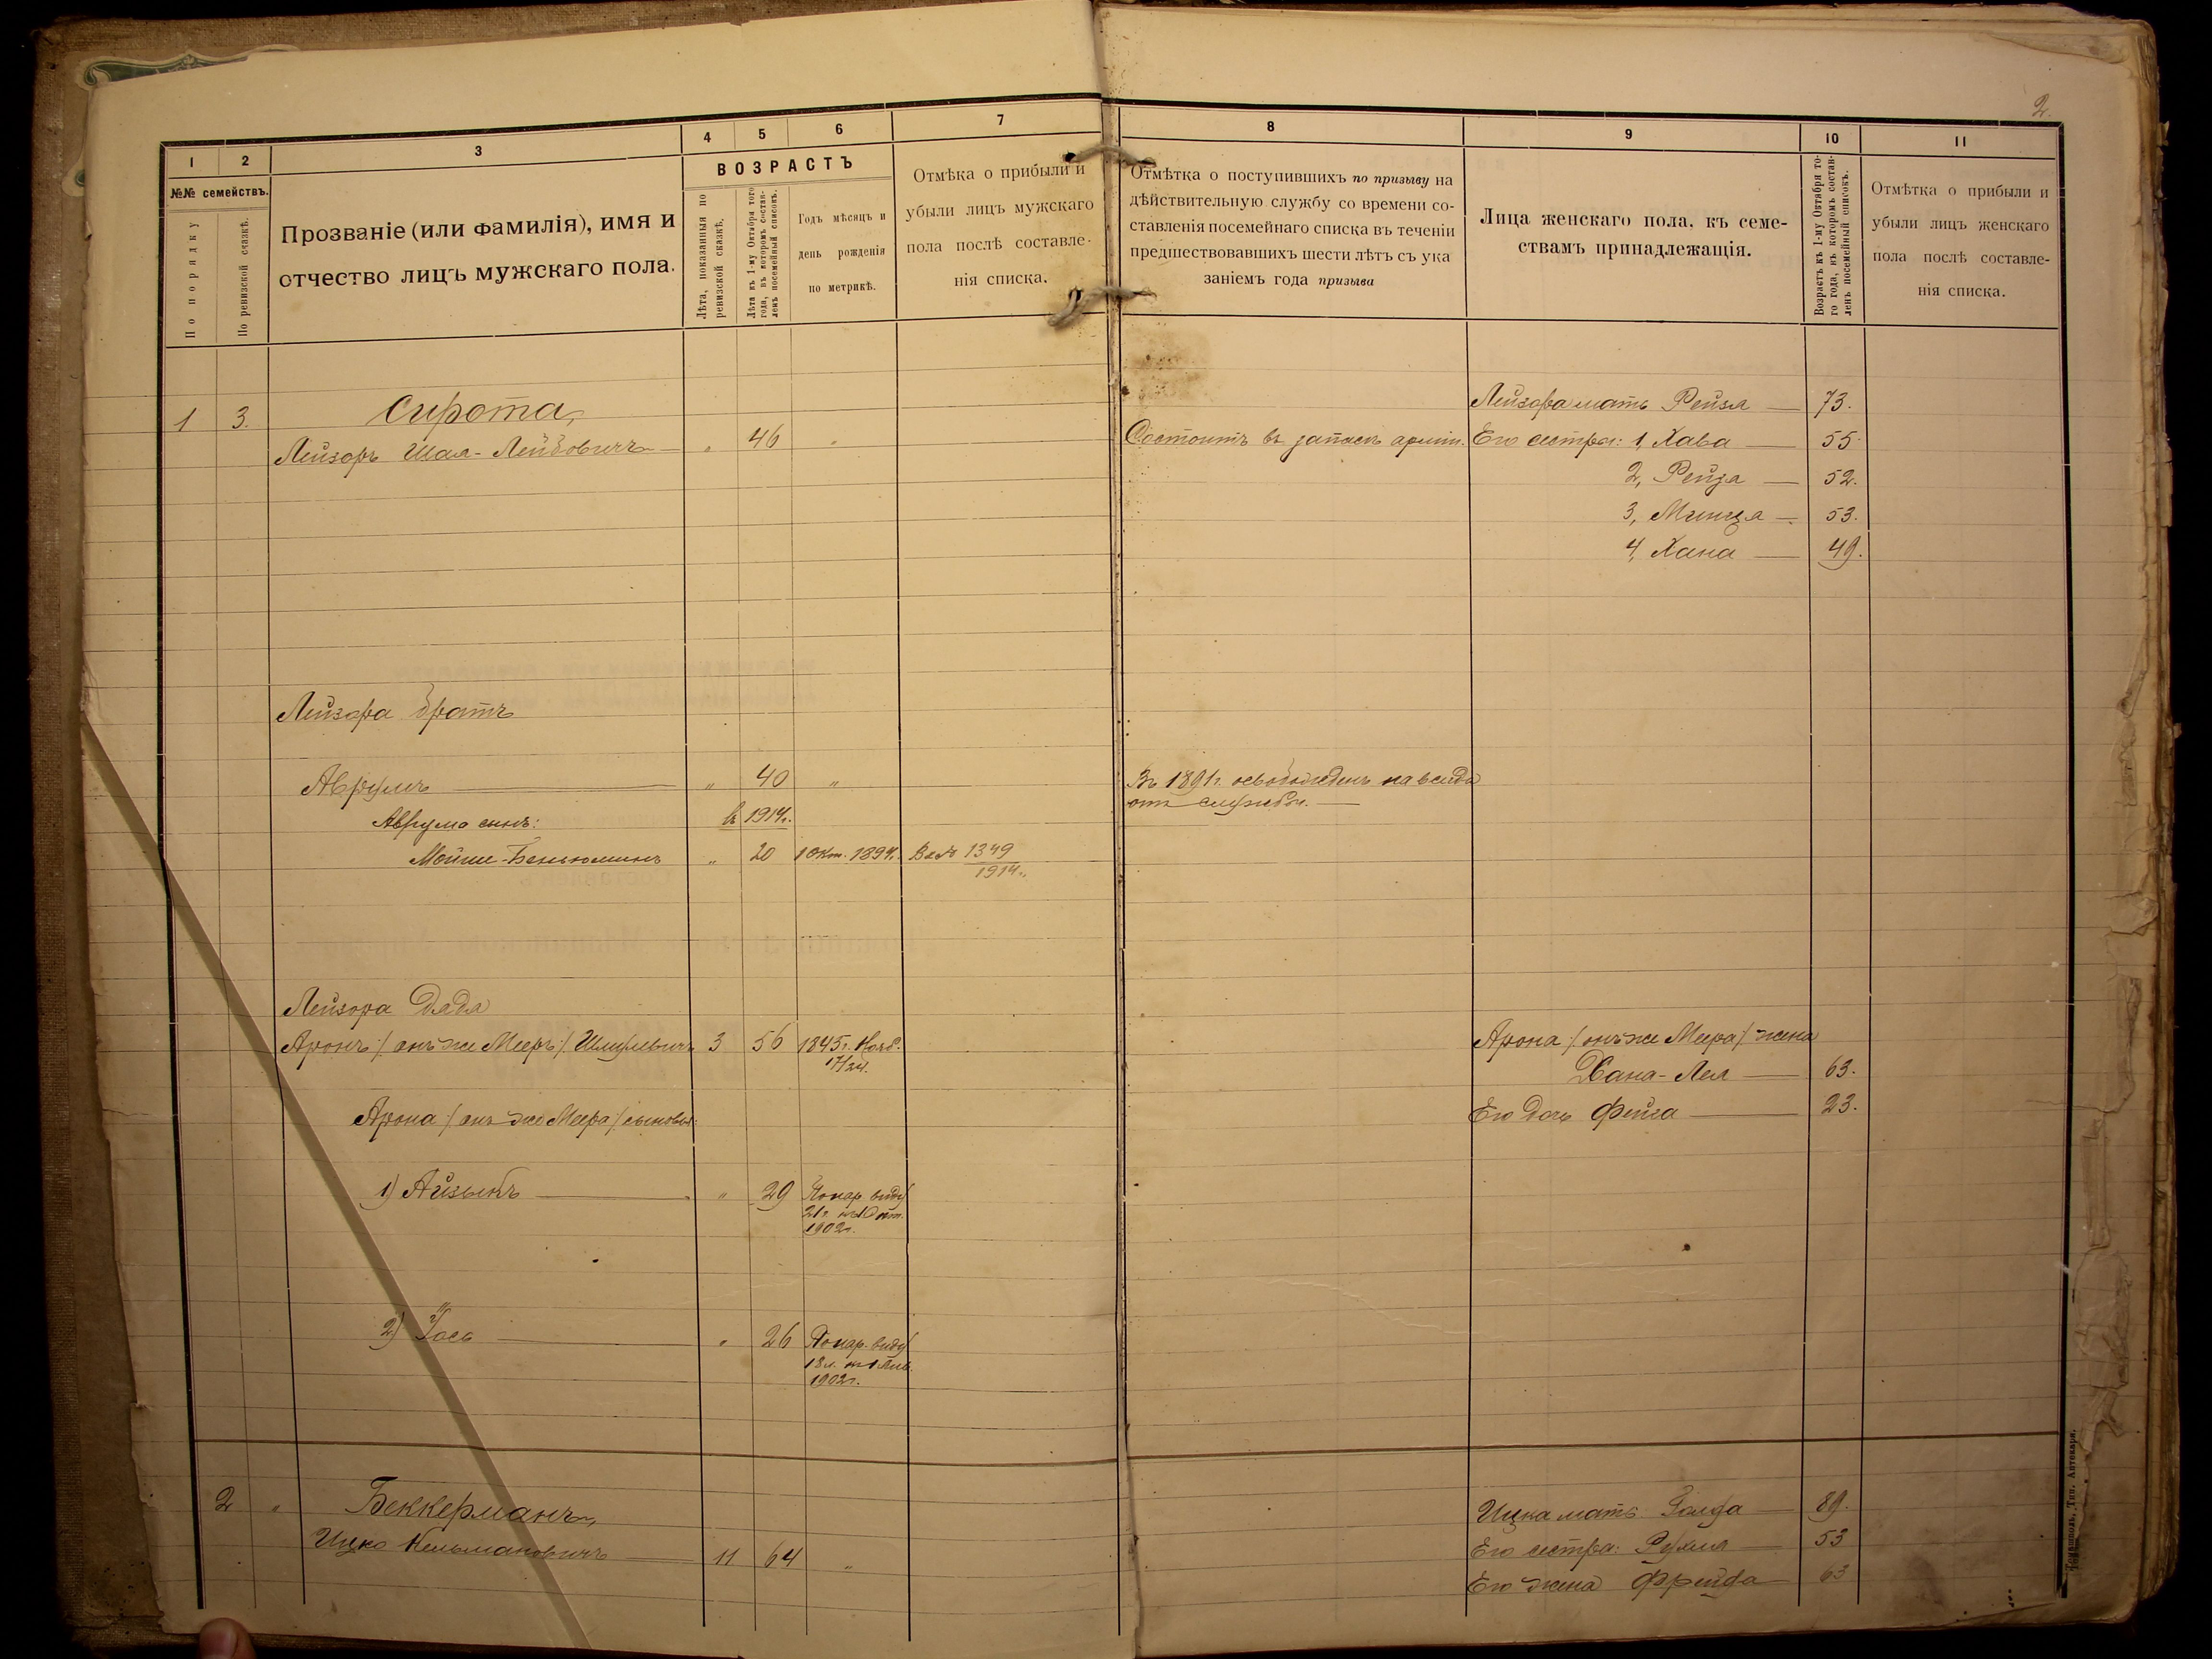 2.
1
2
3
4
5
6
7
8
9
10
11
№№ семействъ.
По порядку
По ревизской сказкѣ.
Прозваніе (или фамилія), имя и
отчество лицъ мужскаго пола.
ВОЗРАСТЪ
Лѣта, показанныя по
ревизской сказкѣ.
Лѣта къ 1-му Октября того
года, въ которомъ состав-
ленъ посемейный списокъ.
Годъ мѣсяцъ и
день рожденія
по метрикѣ.
Отмѣка о прибыли и
убыли лицъ мужскаго
пола послѣ составле-
нія списка.
Отмѣтка о поступившихъ по призыву на
дѣйствительную службу со времени со-
ставленія посемейнаго списка въ теченіи
предшествовавшихъ шести лѣтъ съ ука
заніемъ года призыва
Лица женскаго пола, къ семе-
ствамъ принадлежащія.
Возрастъ къ 1-му Октября то-
го года, въ которомъ состав-
ленъ посемейный списокъ.
Отмѣтка о прибыли и
убыли лицъ женскаго
пола послѣ составле-
нія списка.
1 3. Сирота,
Лейзоръ Шая-Лейбовичъ — " 46 "
Состоитъ въ запасѣ арміи.
Лейзора мать Рейзя — 73.
Его сестра: 1, Хава — 55
2, Рейза — 52.
3, Минця — 53.
4, Хана — 49.
Лейзора братъ
Аврумъ — " 40 "
Въ 1891 г. освобожденъ навсегда
отъ службы. —
Аврума сынъ: въ 1914 г.
Мойше-Беньюминъ " 20 1 Окт. 1894 г. Вх № 1349
1914 г.
Лейзора дядя
Аронъ /онъ же Мееръ/ Шмулевичъ 3 56 1845 г. Нояб.
17/24.
Арона /онъ же Меера/ жена
Хана-Лея — 63.
Его дочь Фейга — 23.
Арона /онъ же Меера/ сыновья:
1) Айзыкъ — " 29 По нар. виду
21 г. къ 1 Окт.
1902 г.
2) Іось — " 26 По нар. виду
18 л. къ 1 Янв.
1902 г.
2 " Беккерманъ,
Ицко Кельмановичъ — 11 64 "
Ицка мать Голда — 89.
Его сестра: Рухля — 53
Его жена Фрейда — 63
Томашполь, Тип. Аптекаря.